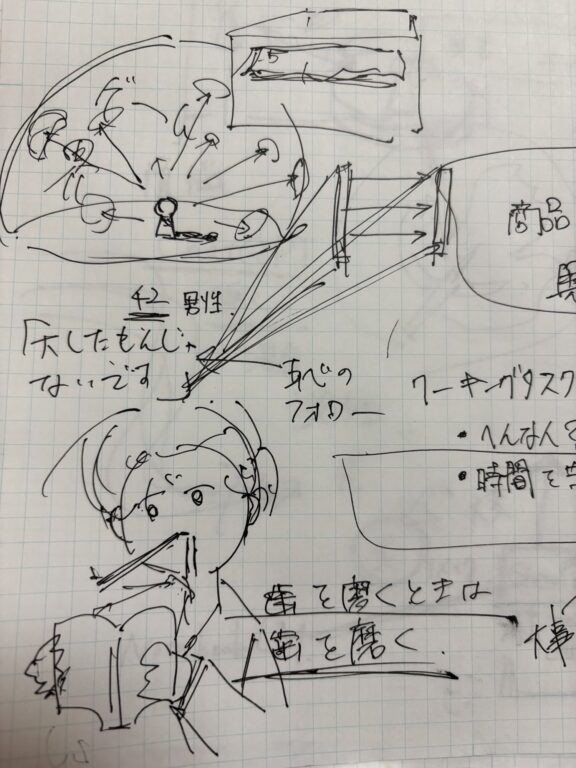 商品
42 男性
「大したもんじゃ
ないです
恥の
フォロー
ワーキングタスク
・へんな人
・時間を
歯を磨くときは
歯を磨く.
大事